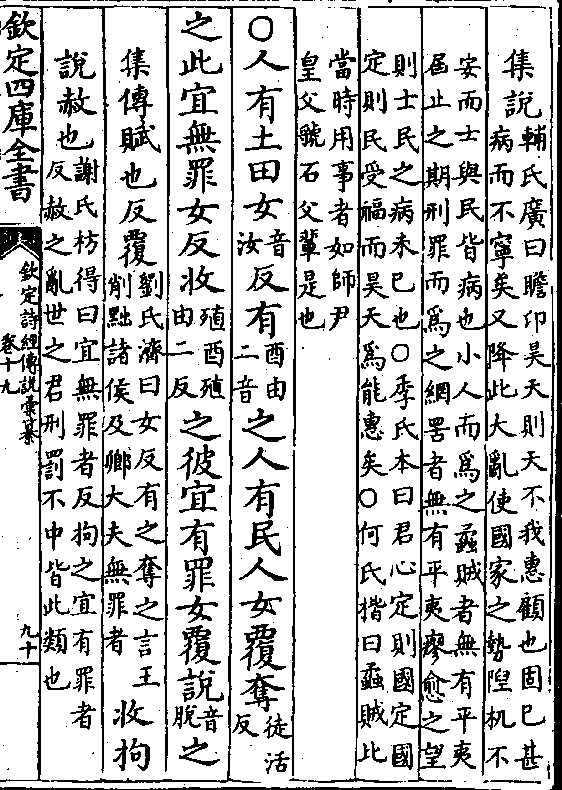 集說輔氏廣曰瞻卬昊天則天不我惠顧也固已甚
病而不寧矣又降此大亂使國家之勢隉杌不
安而士與民皆病也小人而為之蟊賊者無有平夷
屆止之期刑罪而為之網罟者無有平夷瘳愈之望
則士民之病未已也○季氏本曰君心定則國定國
定則民受福而昊天為能惠矣○何氏楷曰蟊賊此
當時用事者如師尹
皇父虢石父輩是也
○人有土田女音汝反有酉由二音之人有民人女覆奪徒活反
之此宜無罪女反收殖酉殖由二反之彼宜有罪女覆說音脫之
集傳賦也反覆劉氏濟曰女反有之奪之言王削黜諸侯及鄉大夫無罪者收拘
說赦也謝氏枋得曰宜無罪者反拘之宜有罪者
反赦之亂世之君刑罰不中皆此類也
欽定四庫全書
欽定詩經傳說彙纂
卷十九
九十